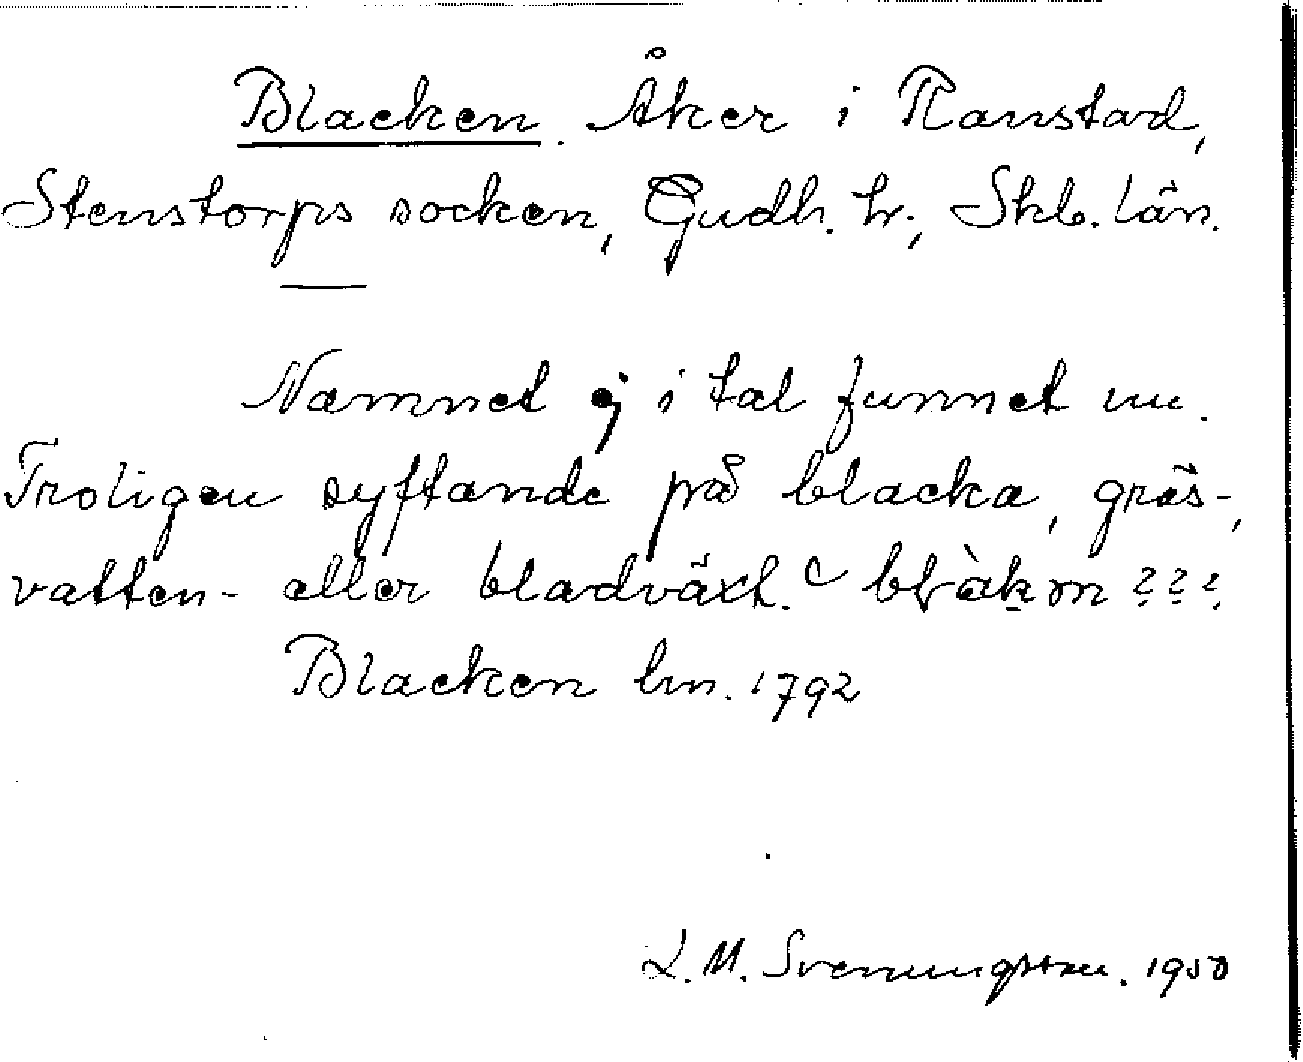 Blacken. Åker i Ranstad,
Stenstorps socken, Gudh. hr., Skb. län.
Namnet ej i tal funnet nu.
Troligen syftande på blacka, gräs-,
vatten- eller bladväxt. ???
Blacken lm. 1792
L. M. Svenungsson. 1950